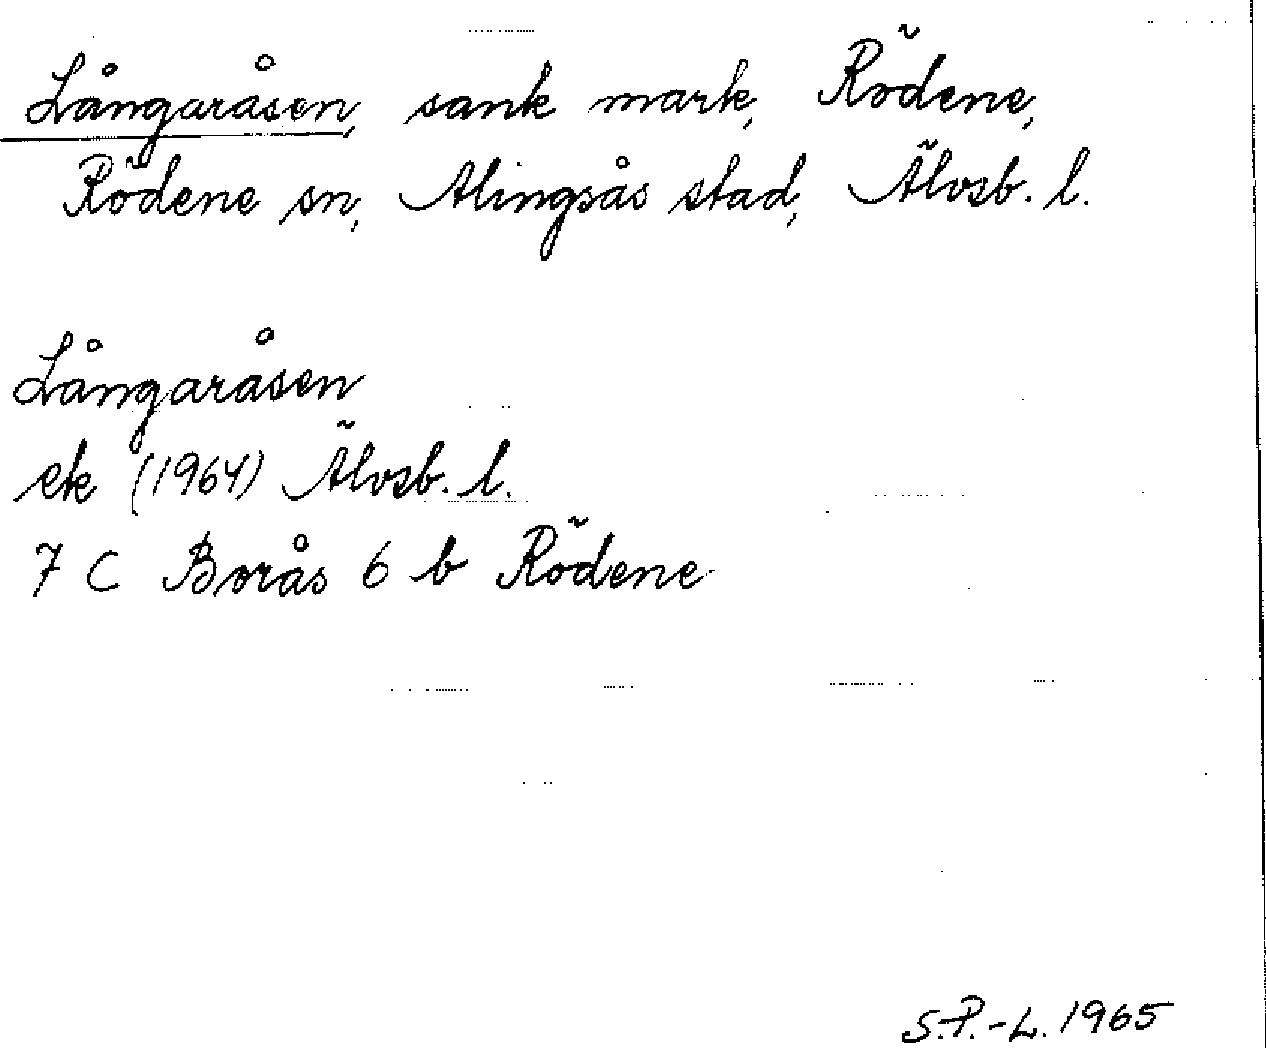 Långaråsen, sank mark, Rödene,
Rödene sn, Alingsås stad, Älvsb. l.
Långaråsen
ek (1964) Älvsb. l.
7 C Borås 6 b Rödene
S.P.-L. 1965